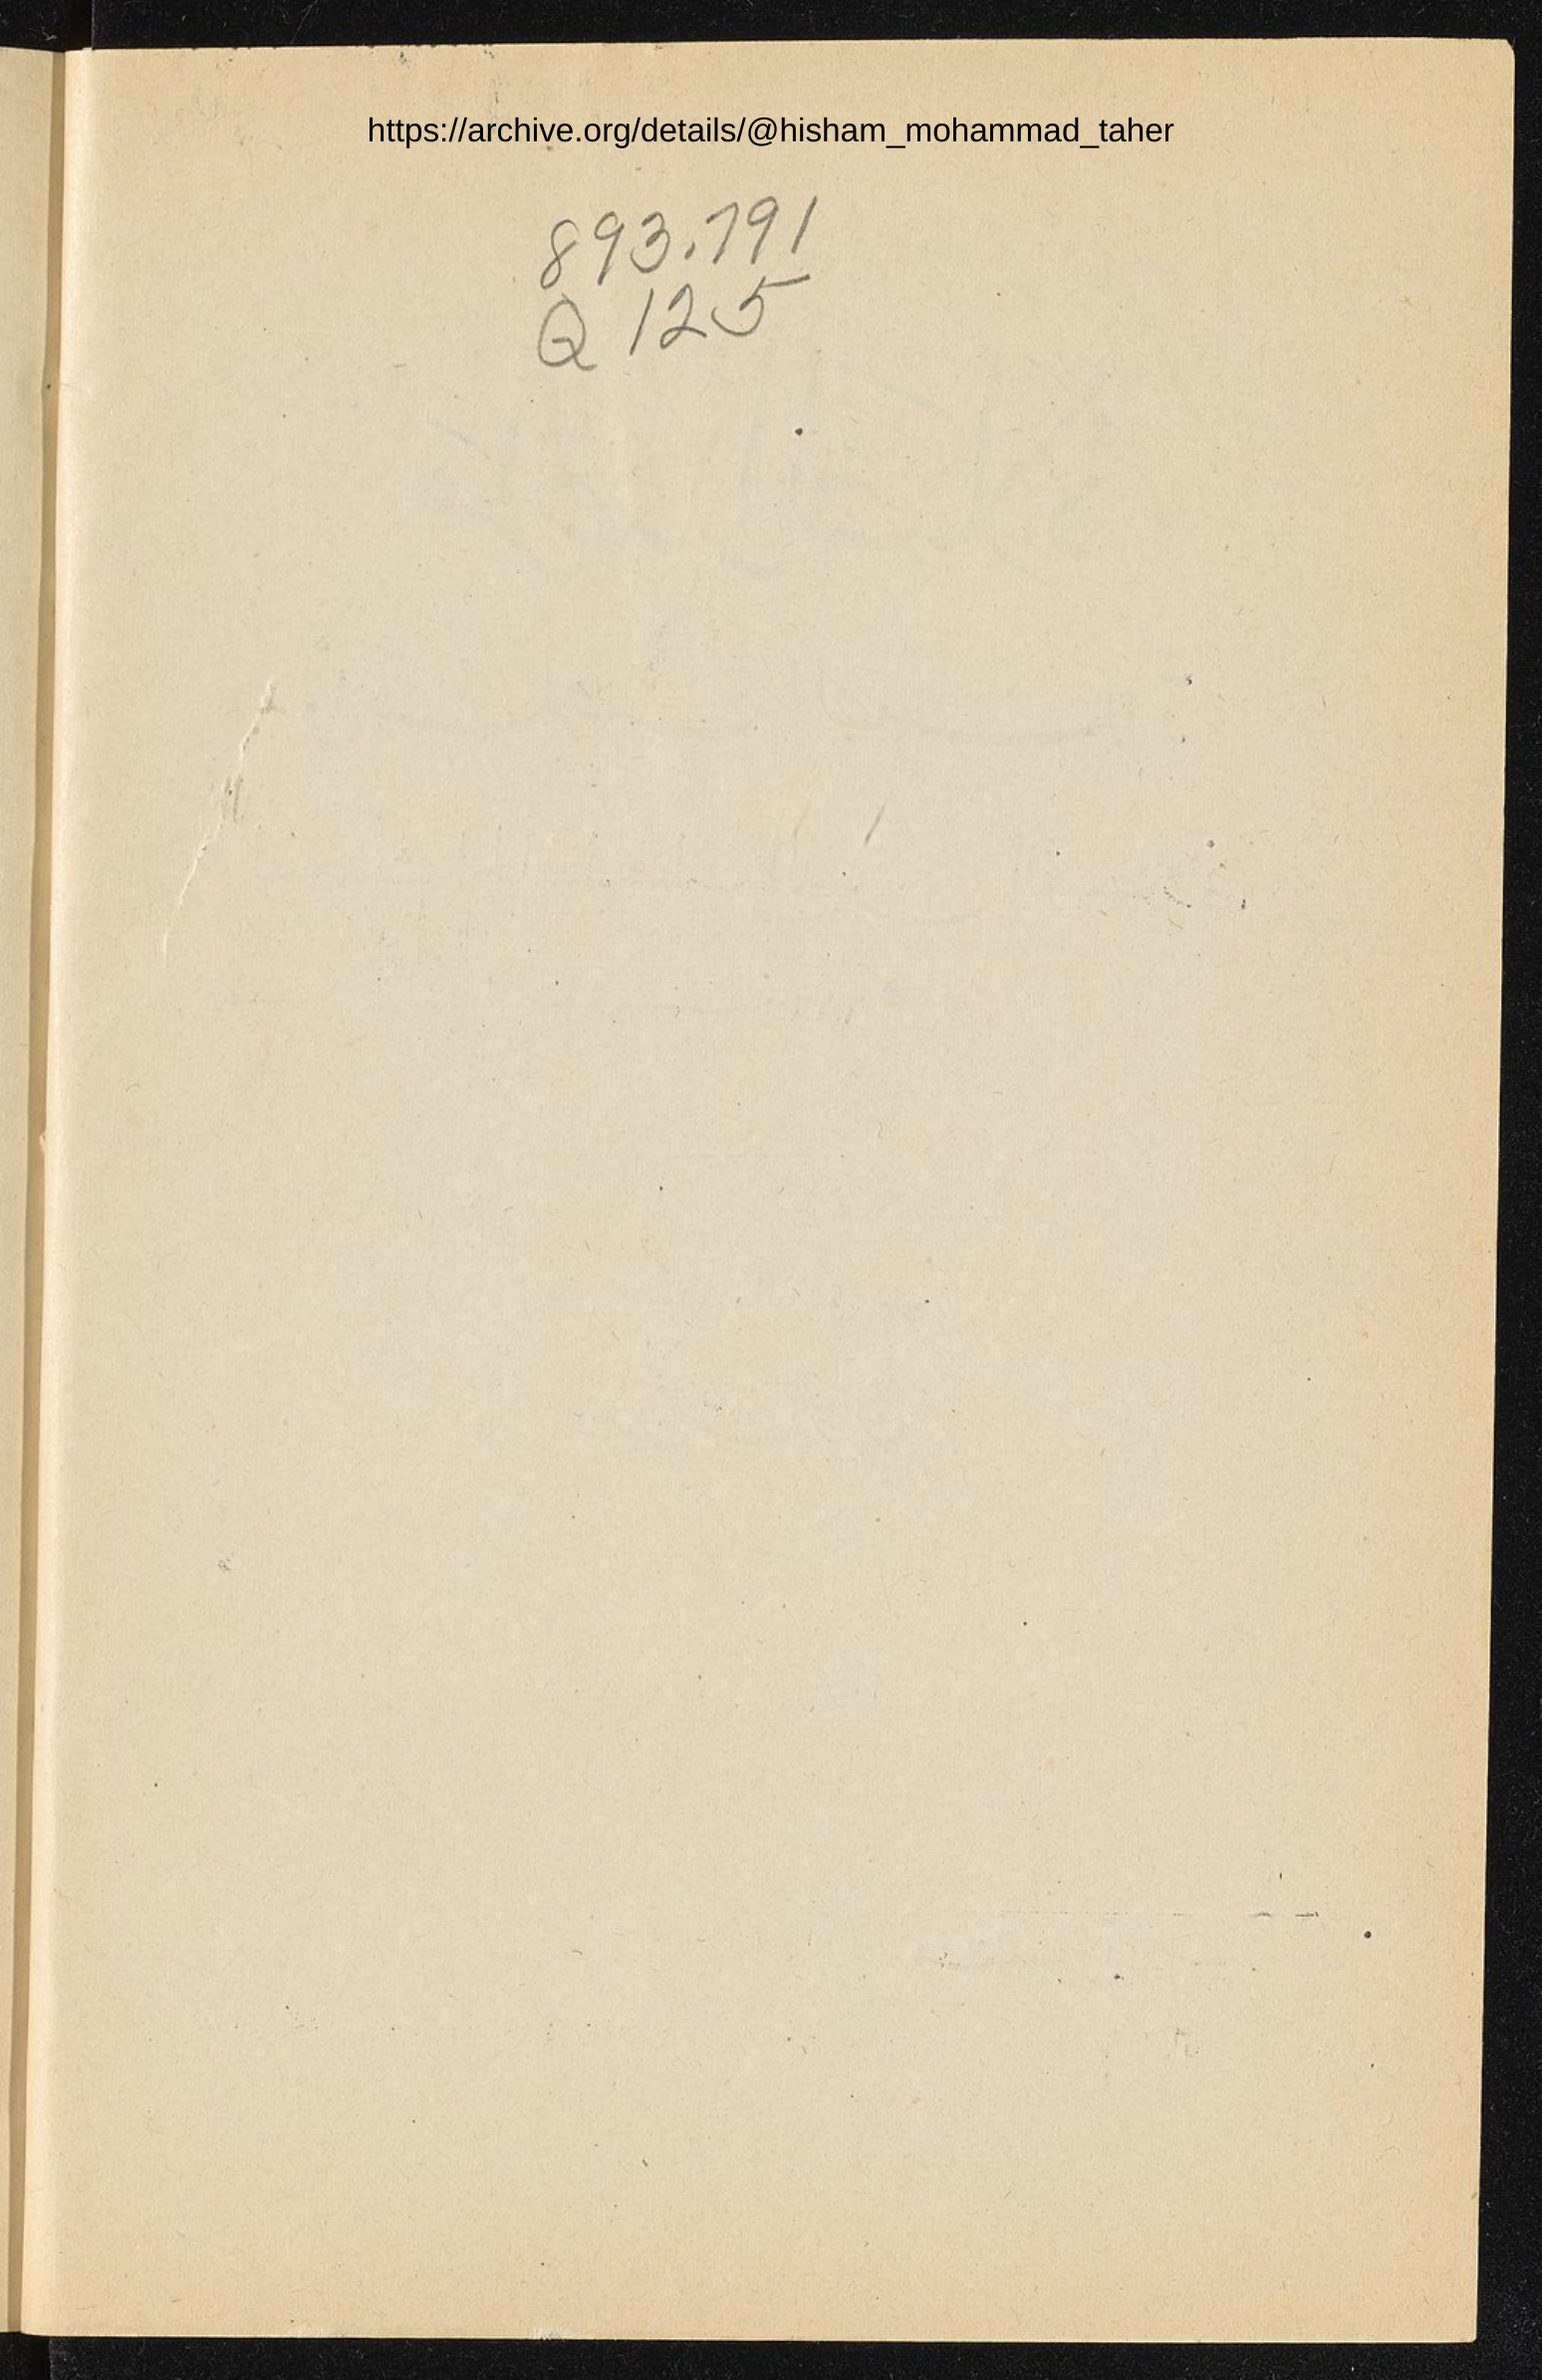 https://archive.org/details/@hisham_mohammad_taher
893.791
Q 125